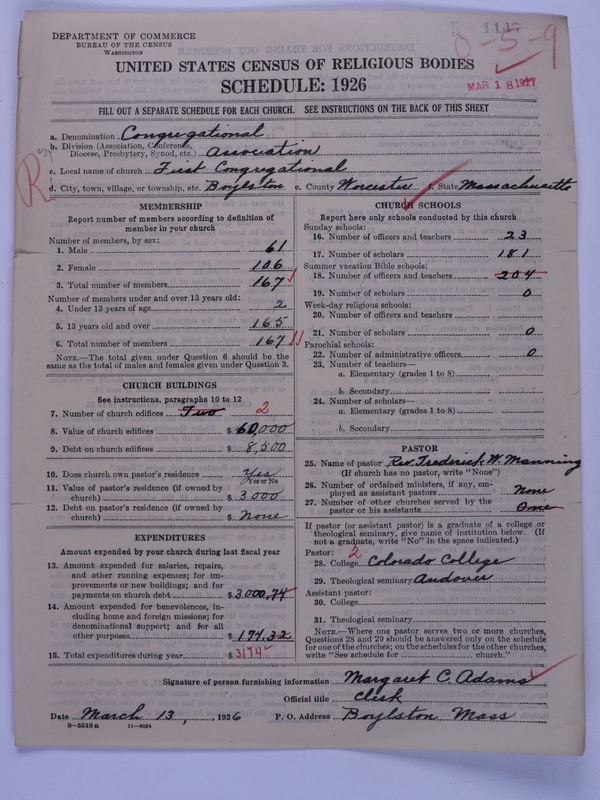 DEPARTMENT OF COMMERCE
BUREAU OF THE CENSUS
WASHINGTON
0-5-9
MAR 18 1927
UNITED STATES CENSUS OF RELIGIOUS BODIES
SCHEDULE: 1926
FILL OUT A SEPARATE SCHEDULE FOR EACH CHURCH. SEE INSTRUCTIONS ON THE BACK OF THIS SHEET
a. Denomination Congregational
b. Division (Association, Conference, Diocese, Presbytery, Synod, etc.) Association
c. Local name of church First Congregational
d. City, town, village, or township, etc. Boylston e. County Worcester f. State Massachusetts
MEMBERSHIP
Report number of members according to definition of
member in your church
Number of members, by sex:
1. Male 61
2. Female 106
3. Total number of members 167
Number of members under and over 13 years old:
4. Under 13 years of age 2
5. 13 years old and over 165
6. Total number of members 167
NOTE.—The total given under Question 6 should be the
same as the total of males and females given under Question 3.
CHURCH BUILDINGS
See instructions, paragraphs 10 to 12
7. Number of church edifices Two 2
8. Value of church edifices $ 60,000
9. Debt on church edifices $ 8,500
10. Does church own pastor's residence Yes
Yes or No
11. Value of pastor's residence (if owned by
church) $ 3000
12. Debt on pastor's residence (if owned by
church) $ None
EXPENDITURES
Amount expended by your church during last fiscal year
13. Amount expended for salaries, repairs,
and other running expenses; for im-
provements or new buildings; and for
payments on church debt $ 3000.74
14. Amount expended for benevolences, in-
cluding home and foreign missions; for
denominational support; and for all
other purposes $ 174.32
15. Total expenditures during year $ 3174
CHURCH SCHOOLS
Report here only schools conducted by this church
Sunday schools:
16. Number of officers and teachers 23
17. Number of scholars 181
Summer vacation Bible schools:
18. Number of officers and teachers 204
19. Number of scholars 0
Week-day religious schools:
20. Number of officers and teachers
21. Number of scholars 0
Parochial schools:
22. Number of administrative officers 0
23. Number of teachers—
a. Elementary (grades 1 to 8)
b. Secondary
24. Number of scholars—
a. Elementary (grades 1 to 8)
b. Secondary
PASTOR
25. Name of pastor Rev. Frederick W. Manning
(If church has no pastor, write "None")
26. Number of ordained ministers, if any, em-
ployed as assistant pastors None
27. Number of other churches served by the
pastor or his assistants
If pastor (or assistant pastor) is a graduate of a college or
theological seminary, give name of institution below. (If
not a graduate, write "No" in the space indicated.)
Pastor: 2
28. College Colorado College
29. Theological seminary Andover
Assistant pastor:
30. College
31. Theological seminary
NOTE.—Where one pastor serves two or more churches,
Questions 28 and 29 should be answered only on the schedule
for one of the churches; on the schedules for the other churches,
write "See schedule for church."
Signature of person furnishing information Margaret C. Adams
Official title Clerk
Date March 13, , 1926 P. O. Address Boylston Mass
8-5518a 11-9084